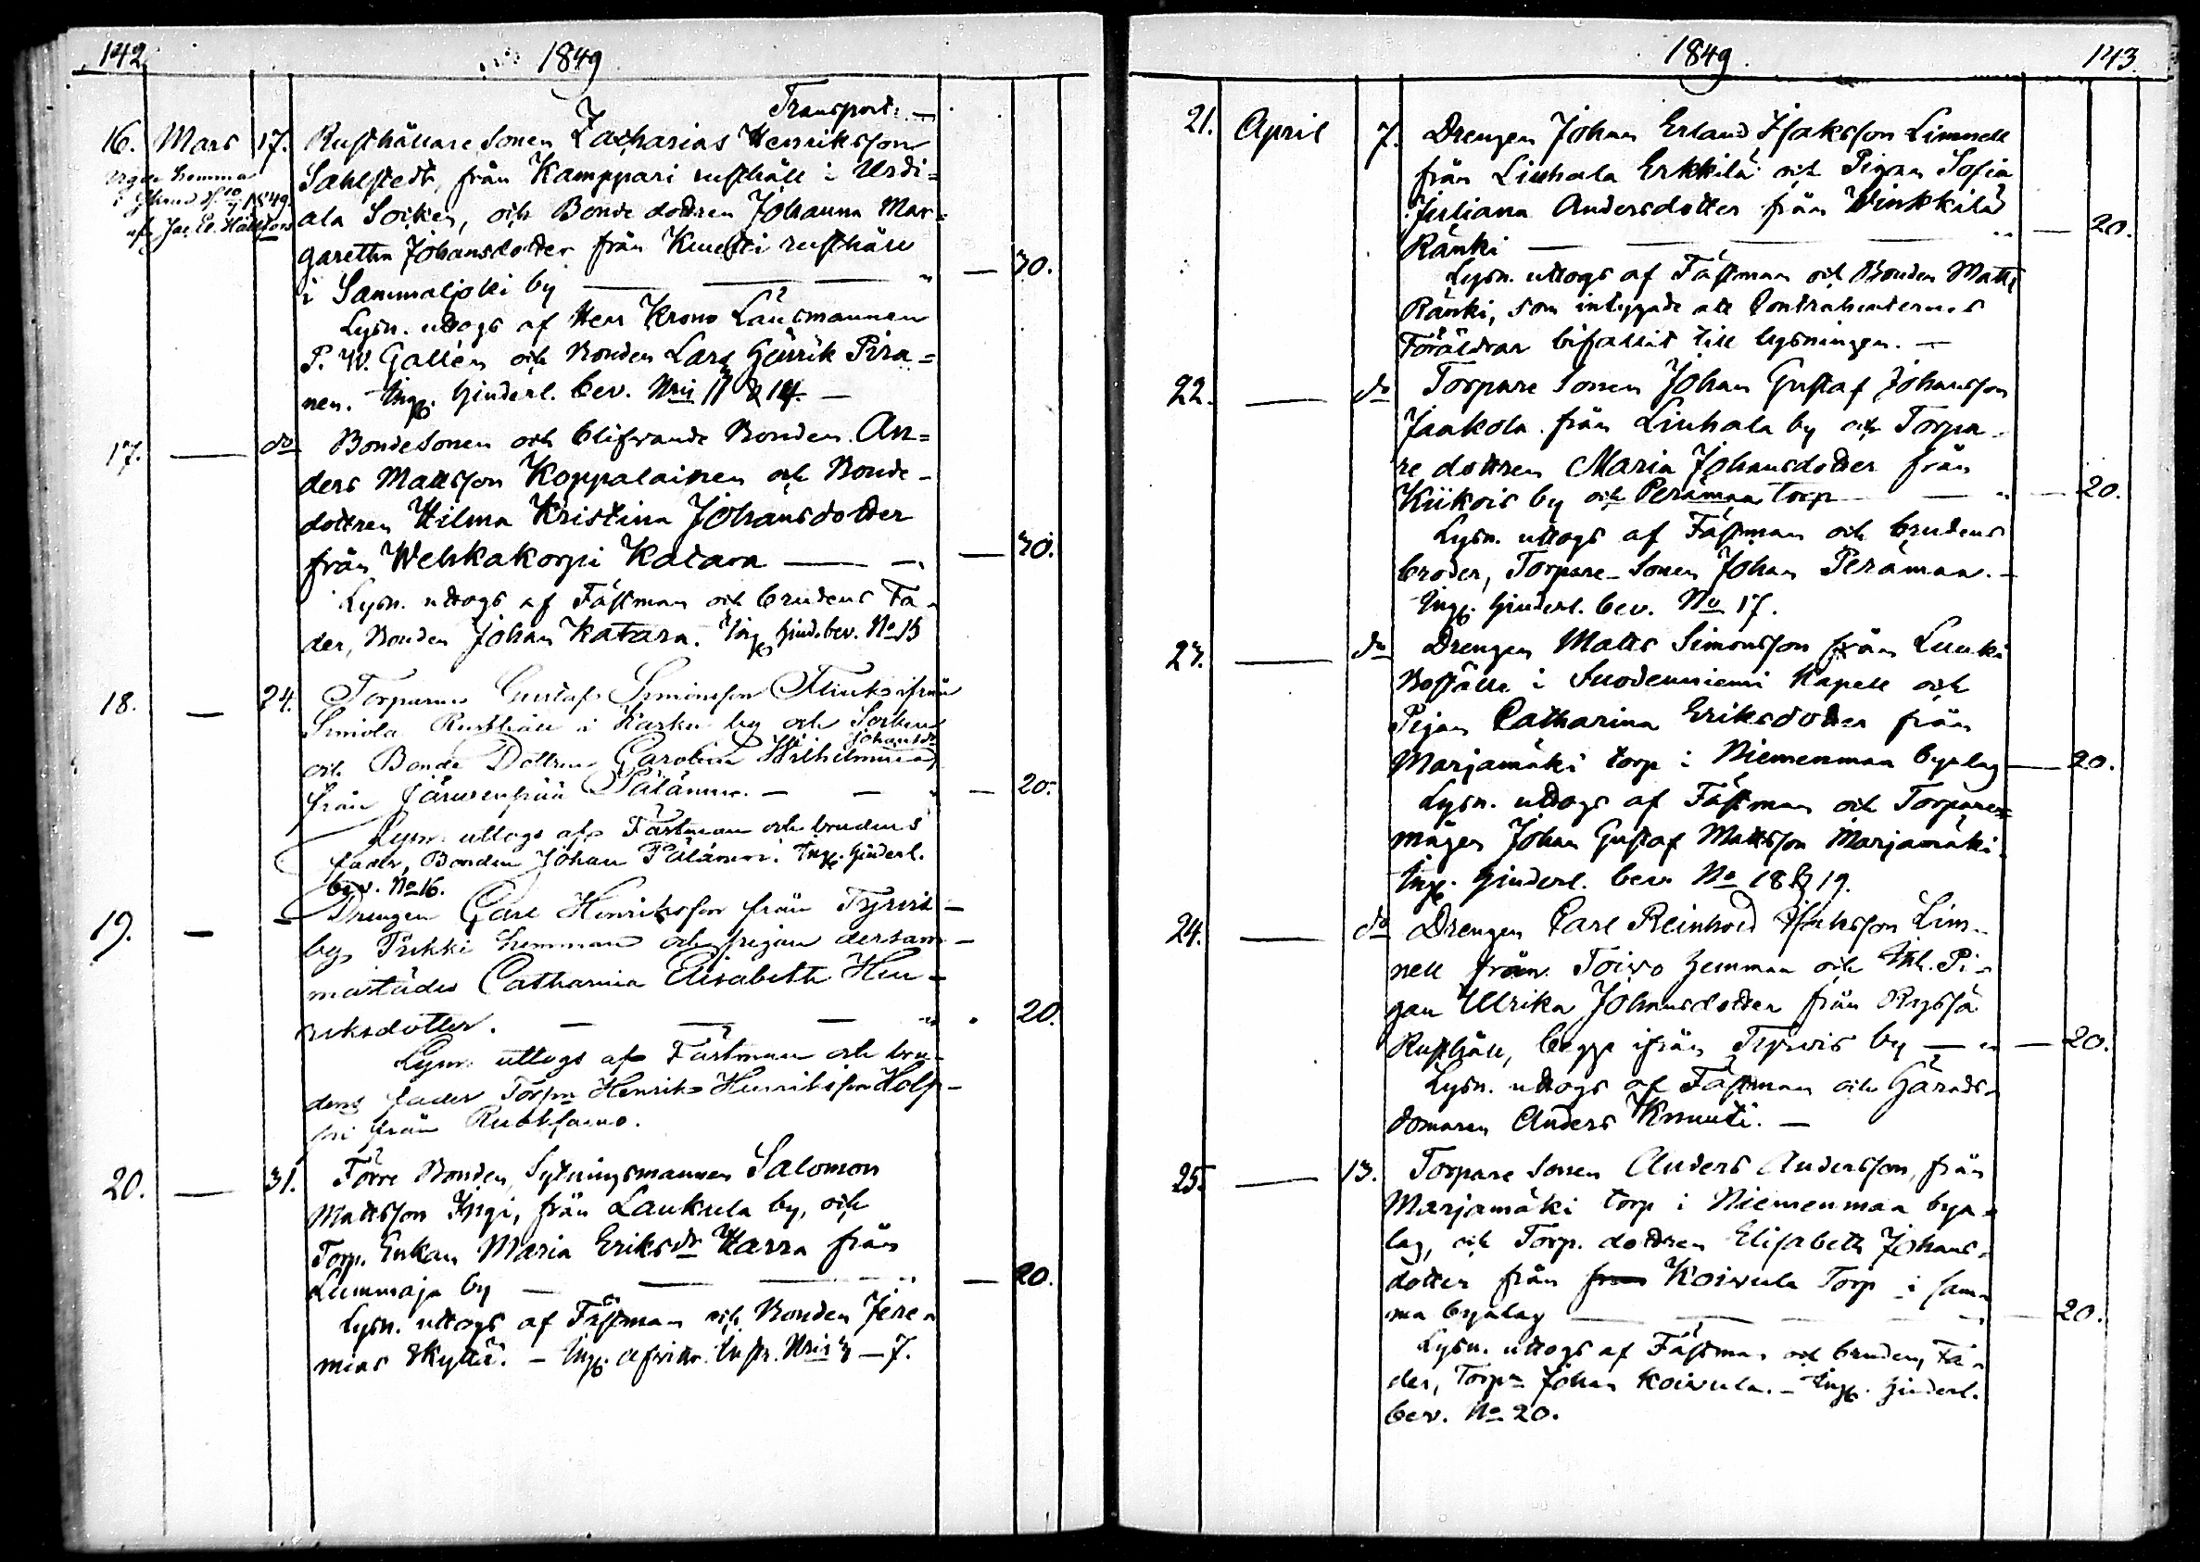 142.
1849
Transport: —
16. Mars 17. Rusthållare Sonen Zacharias Henriksson
Sahlstedt, från Kamppari rusthåll i Urdi=
ala Socken, och Bonde dottren Johanna Mar=
garetha Johansdotter från Knuuti rusthåll
i Sammaljoki by — — — " — 30.
Lysn. uttogs af Herr Krono Länsmannen
P. W. Gallén och Bonden Lars Henrik Pira=
nen. Ingg. hinderl. bev. Nris 11 & 14. —
17. — do Bonde Sonen och blifvande Bonden An=
ders Mattsson Koppalainen och Bonde-
dottren Wilma Kristina Johansdotter
från Wehkakorpi Katara — — — 30.
Lysn. uttogs af Fästman och brudens Fa-
der, Bonden Johan Katara. Ingg. hind. bev. No 15
18. — 24. Torparen Gustaf Simonsson Flink ifrån
Simola Rusthåll i Karku by och Socken
och Bonde Dottren Carolina Wilhelmina Johansdr
från Järvenpää Pälämi. — — " — 20.
Lysn. uttogs af Fästman och brudens
fader, Bonden Johan Pälämi. Ingg. hinderl.
bev. No 16.
19. — — Drengen Carl Henriksson från Tyrvis
by Prikki hemman och pigan dersam-
mastädes Catharina Elisabeth Hen-
riksdotter. — — — " . 20.
Lysn. uttogs af Fästman och bru-
dens fader Torpn Henrik Henriksson Holp-
pi från
20. — 31. Förre Bonden, Sytningsmannen Salomon
Mattsson Yngi, från Laukula by, och
Torp. Enkan Maria Eriksdr Karra från
Lummaja by — — — " — 20.
Lysn. uttogs af Fästman och Bonden Jere-
mias Skyttä. — Ingg. afvittr. Instr. Nris 3 — 7.
1849.
143.
21. April 7. Drengen Johan Erland Isaksson Limnell
från Liuhala Erkkilä och Pigan Sofia
Juliana Andersdotter från Vinkkilä
Ränki — — — " — 20.
Lysn. uttogs af Fästman och Bonden Matts
Ränki, som intygade att Contrahenternes
Föräldrar bifallit till lysningen. —
22. — do Torpare Sonen Johan Gustaf Johansson
Jaakola från Liuhala by och Torpa-
re dottren Maria Johansdotter från
Kiikois by och Perämaa torp — — " — 20.
Lysn. uttogs af Fästman och brudens
broder, Torpare-Sonen Johan Perämaa. —
Ingg. hinderl. bev. No 17.
23. — do Drengen Matts Simonsson från Luuki
Boställe i Suodenniemi Kapell och
Pigan Catharina Eriksdotter från
Marjamäki torp i Niemenmaa byalag — 20.
Lysn. uttogs af Fästman och Torpare-
mågen Johan Gustaf Mattsson Marjamäki.
Ingg. hinderl. bev. No 18 & 19.
24. — do Drengen Carl Reinhold Isaksson Lim-
nell från Toivo hemman och Inh. Pi-
gan Ulrika Johansdotter från Ryssä
Rusthåll, begge ifrån Tyrvis by — " — 20.
Lysn. uttogs af Fästman och Härads-
domaren Anders Knuuti. —
25. — 13. Torpare Sonen Anders Andersson, från
Marjamäki torp i Niemenmaa bya-
lag, och Torp. dottren Elisabeth Johans-
dotter från från Koivula Torp i sam-
ma byalag — — — " — 20.
Lysn. uttogs af Fästman och brudens Fa-
der, Torpn Johan Koivula. — Ingg. hinderl.
bev. No 20.